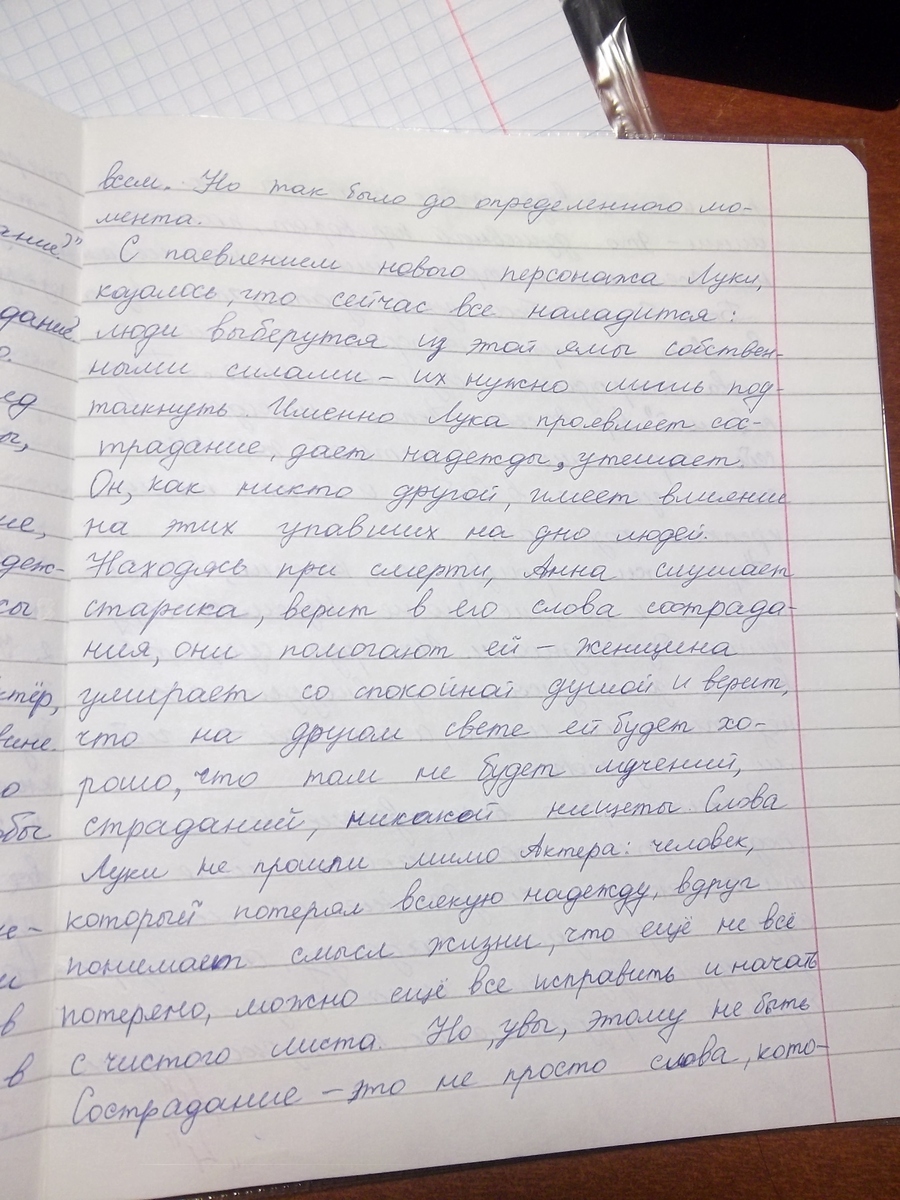 всем. Но так было до определенного мо-
мента.
С паевлением нового персонажа Луки,
казалось, что сейчас все наладится:
люди выберутся из этой ямы собствен-
ными силами – их нужно лишь под-
толкнуть Именно Лука проявляет сос-
традание, дает надежды, утешает
Он, как никто другой, имеет влияние
на этих упавших на дно людей.
Находясь при смерти, Анна слушает
старика, верит в его слова сострада-
ния, они помогают ей – женщина
умирает со спокойной душой и верит,
что на другом свете ей будет хо-
рошо, что там не будет мучений,
страданий, никакой нищеты Слова
Луки не прошли мимо Актера: человек,
который потерял всякую надежду, вдруг
понимает смысл жизни, что ещё не всё
потеряно, можно ещё все исправить и начать
с чистого листа. Но, увы, этому не быть
Сострадание – это не просто слова, кото-